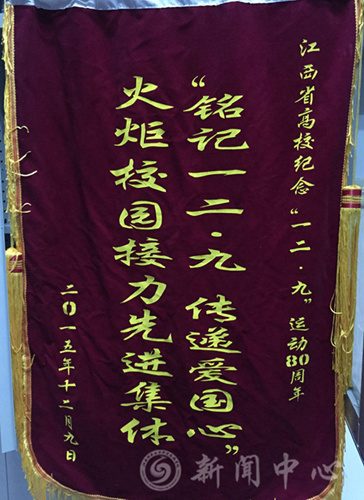 江西省高校纪念“一二·九”运动80周年
“铭记一二·九 传递爱国心”
火炬校园接力先进集体
二0一五年十二月九日
新闻中心